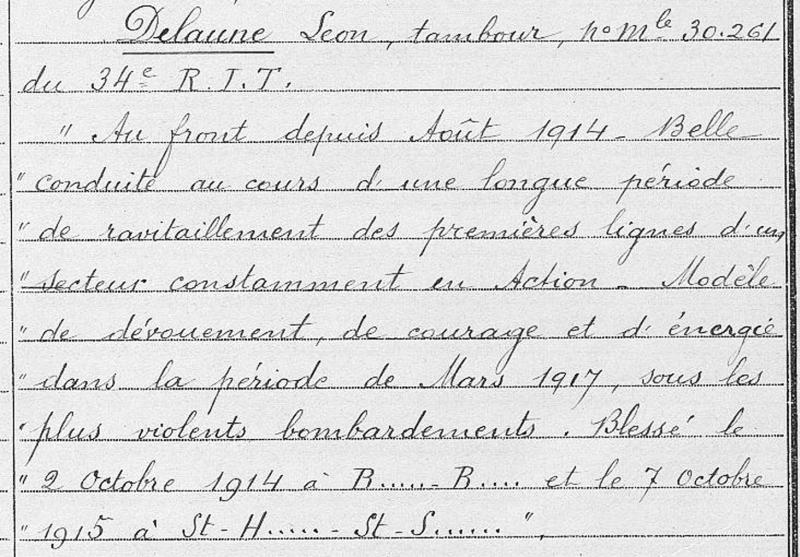 Delaune Leon, tambour, no Mle 30.261
du 34e R.I.T.
" Au front depuis Août 1914 - Belle
" conduite au cours d'une longue période
" de ravitaillement des premières lignes d'un
" secteur constamment en Action - Modèle
" de dévouement, de courage et d'énergie
" dans la période de Mars 1917, sous les
" plus violents bombardements. Blessé le
" 2 Octobre 1914 à B.....-B.... et le 7 Octobre
" 1915 à St-H......-St-S...... ".